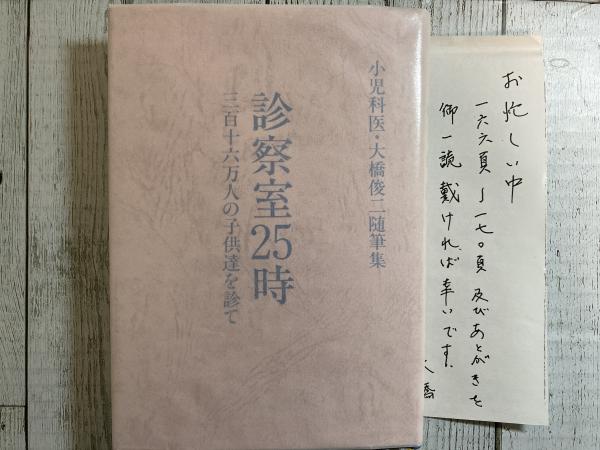 小児科医・大橋俊二随筆集
診察室25時
三百十六万人の子供達を診て
お忙しい中
一六六頁〜一七〇頁及びあとがきを
御一読戴ければ幸いです。
大橋